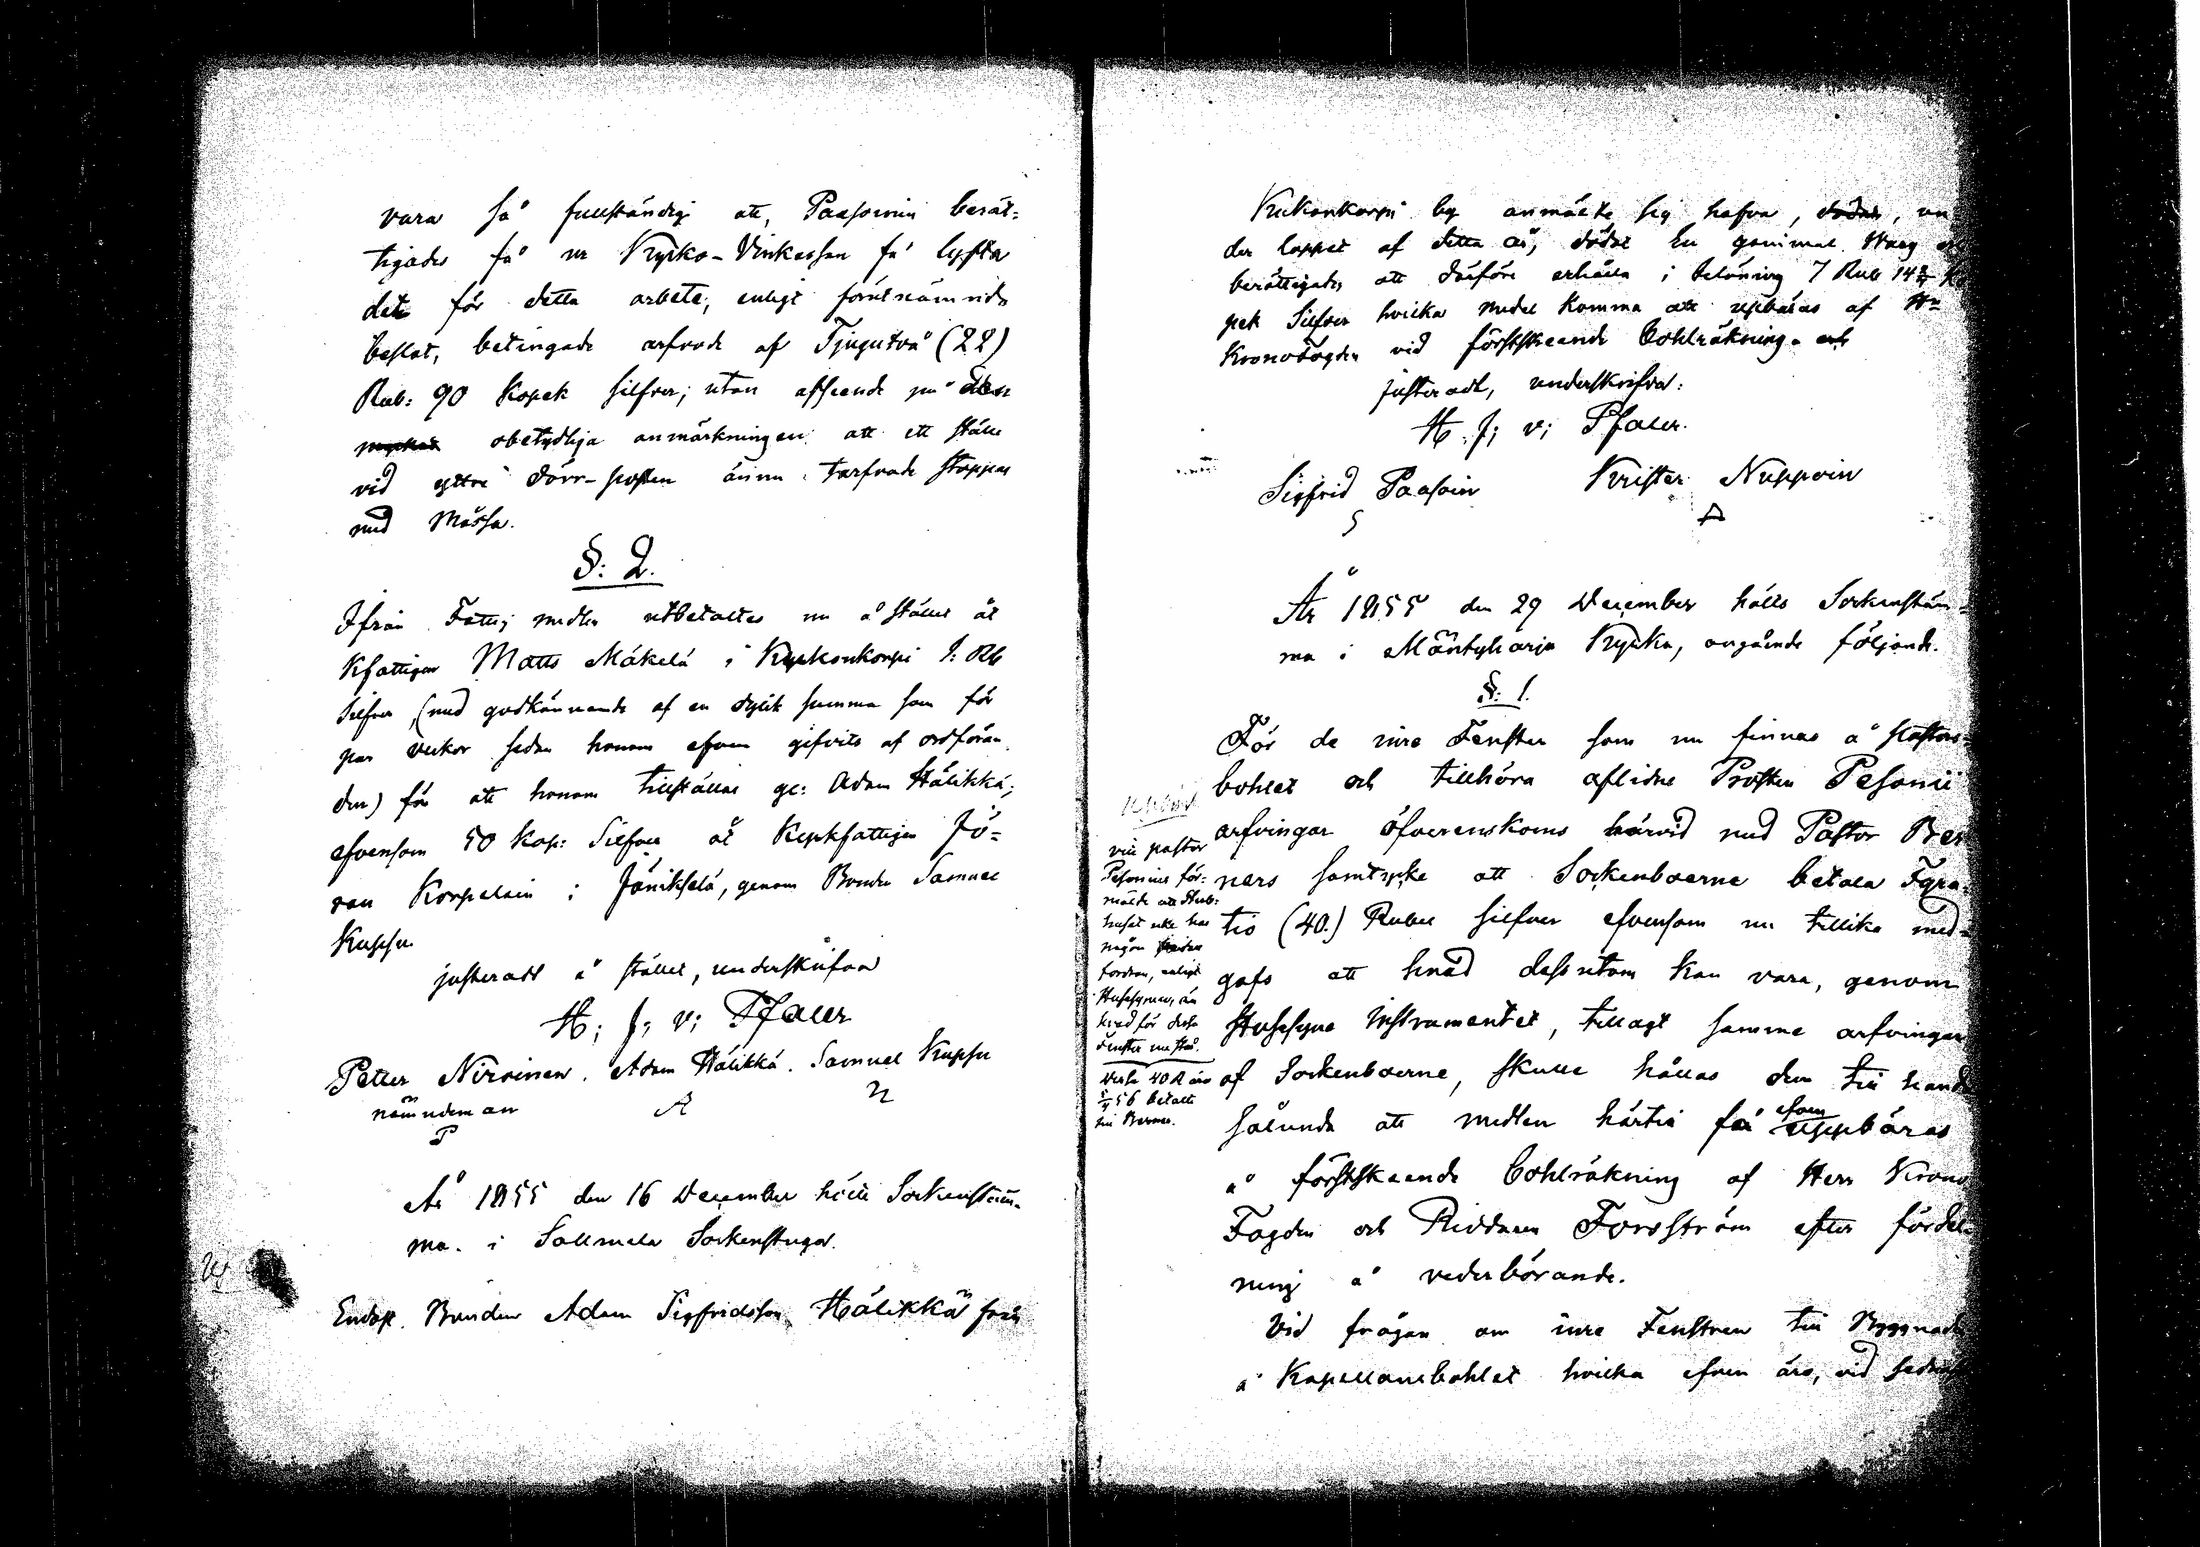 vara så fullständigt att, Paasoinin berät-
tigades få ur Kyrko-Vinkassan få lyfta
det för detta arbete, enligt förutnämnda
beslut, betingade arfvode af Tjugutvå (22)
Rub: 90 Kopek silfver; utan afseende på den
mycket obetydliga anmärkningen att ett ställe
vid yttre dörr-posten ännu tarfvade stoppas
med Måssa.
§: 2.
Ifrån Fattig medlen utbetaltes nu å stället åt
Kfattigen Matts Mäkelä i Kyrkonkorpi 1: Rb
Silfver, (med godkännande af en dylik summa som för
par veckor sedan honom äfven gifvits af ordföran
den) för att honom tillställas ge: Adam Hälikkä;
äfvensom 50 Kop: Silfver åt Kyrkfattigen Jö-
ran Korpelain i Jäniksälä, genom Bonden Samuel
Kuppu.
justeradt å stället, underskrifva
H; J; v; Pfaler
Petter Niroinen. Adam Hälikkä. Samuel Kuppu
nämndeman
P
A
n
År 1855 den 16 December hölls Sockenstäm-
ma i Sallmela Sockenstuga.
Endast Bonden Adam Sigfridsson Hälikkä från
Kukonkorpi by anmälte sig hafva, dödat, un
der loppet af detta år, dödat En gammal Warg och
berättigades att därföre erhålla i belöning 7 Rub 14 2/7 Ko
pek Silfver hvilka medel komma att uppbäras af Hr
Kronofogden vid förstskeende Bohlräkning. och
justeradt, underskrifva:
H. J; v; Pfaler.
Sigfrid Paasoin Krister Nuppoin
S
A
År 1855 den 29 December hölls Sockenstäm-
ma i Mäntyharju Kyrka, angående följande.
§: 1.
För de inre Fenster som nu finnas å Pastors-
bohlet och tillhöra aflidne Prosten Pesonii
arfvingar öfverenskoms härvid med Pastor Ber
ners samtycke att Sockenboerne betala Fyra-
tio (40.) Rubel silfver äfvensom nu tillika med-
gafs att hvad dessutom kan vara, genom
Husesyns Instrumentet, tillagt samme arfvingar
af Sockenboerne, skulle hållas dem till handa
sålunda att medlen härtill få äfven uppbäras
å förstskeende Bohlräkning af Herr Krono
Fogden och Riddaren Forsström efter fördel-
ning å vederbörande.
Vid frågan om inre Fenstren till Byggnaden
å Kapellansbohlet hvilka äfven äro, vid
vice pastor
Pesonius för-
mälde att Sterb-
huset icke har
någon
fordran, enligt
Husesynen, än
hvad för dessa
Fenster
Desse 40 R äro
56 betalte
till Berner.